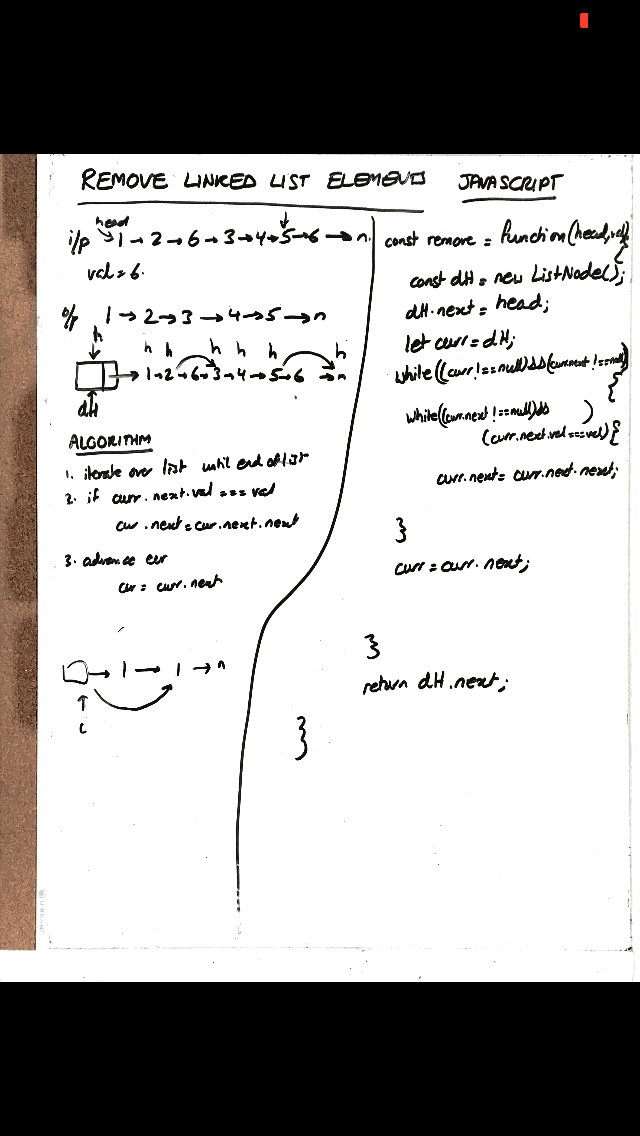 REMOVE LINKED LIST ELEMENTS JAVASCRIPT
head
i/p 1 → 2 → 6 → 3 → 4 → 5 → 6 → n
val = 6.
o/p 1 → 2 → 3 → 4 → 5 → n
h h h h h h h
→ 1 → 2 → 6 → 3 → 4 → 5 → 6 → n
dH
ALGORITHM
1. iterate over list until end of list
2. if curr.next.val === val
cur.next = cur.next.next
3. advance cur
cur = curr.next
→ 1 → 1 → n
const remove = function(head, val) {
const dH = new ListNode();
dH.next = head;
let curr = dH;
while((curr !== null) && (curr.next !== null)) {
while((curr.next !== null) && )
(curr.next.val === val) {
curr.next = curr.next.next;
}
curr = curr.next;
}
return dH.next;
}